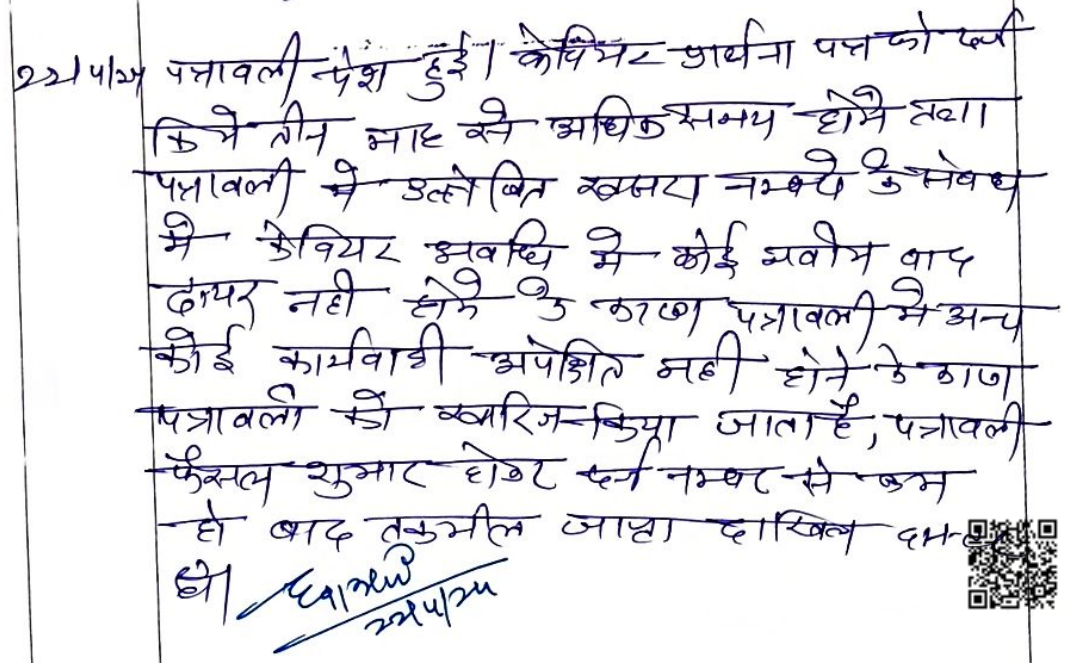 22/4/25 पत्रावली पेश हुई। केवियर प्रार्थना पत्र को दर्ज
किये तीन माह से अधिक समय होने तथा
पत्रावली मे उल्लेखित खसरा नम्बरो के संबंध
मे केवियर अवधि मे कोई नवीन वाद
दायर नही होने के कारण पत्रावली मे अन्य
कोई कार्यवाही अपेक्षित नही होने के कारण
पत्रावली को खारिज किया जाता है, पत्रावली
फैसल शुमार होकर दर्ज नम्बर से कम
हो बाद तकमील जाप्ता दाखिल दफ्तर
हो।
22/4/25